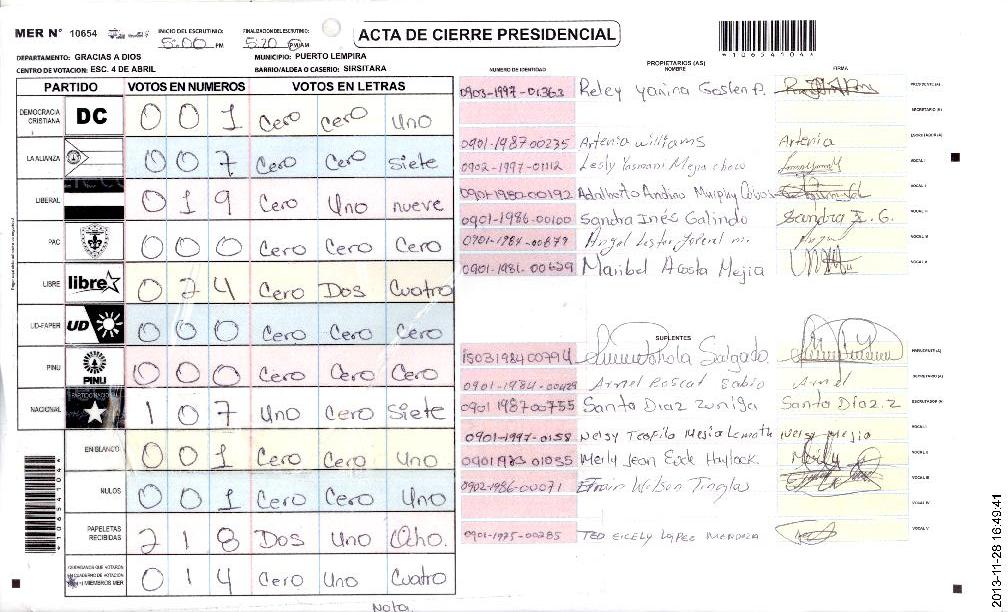 MER N° 10654 INICIO DEL ESCRUTINIO: 5:00 PM FINALIZACION DEL ESCRUTINIO: 5:20 PM/AM ACTA DE CIERRE PRESIDENCIAL
DEPARTAMENTO: GRACIAS A DIOS MUNICIPIO: PUERTO LEMPIRA
CENTRO DE VOTACION: ESC. 4 DE ABRIL BARRIO/ALDEA O CASERIO: SIRSITARA
PARTIDO VOTOS EN NUMEROS VOTOS EN LETRAS
DEMOCRACIA CRISTIANA DC 0 0 1 Cero Cero Uno
LA ALIANZA 0 0 7 Cero Cero Siete
LIBERAL 0 1 9 Cero Uno nueve
PAC 0 0 0 Cero Cero Cero
LIBRE libre 0 24 Cero Dos Cuatro
UD-FAPER UD 0 0 0 Cero Cero Cero
PINU PINU 0 0 0 Cero Cero Cero
NACIONAL 1 0 7 Uno Cero Siete
EN BLANCO 0 0 1 Cero Cero Uno
NULOS 0 0 1 Cero Cero Uno
PAPELETAS RECIBIDAS 2 1 8 Dos Uno Ocho.
CIUDADANOS QUE VOTARON EN CUADERNO DE VOTACION MIEMBROS MER 0 1 4 Cero Uno Cuatro
Nota.
*10654104*
PROPIETARIOS (AS)
NUMERO DE IDENTIDAD NOMBRE FIRMA
0903-1997-01363 Reley Yanira PRESIDENTE (A)
SECRETARIO (A)
0901-1987 00235 Artenia Williams Artenia ESCRUTADOR (A)
0902-1997-01112 Lesly VOCAL I
0901-1980-00192 Adalberto Andino Murphy VOCAL II
0901-1986-00100 Sandra Inés Galindo Sandra I. G. VOCAL III
0901-1984-00877 Angel VOCAL IV
0901-1981-00629 Maribel Acosta Mejia VOCAL V
SUPLENTES
Salgado PRESIDENTE (A)
0901-1984-00429 Arnel Arnel SECRETARIO (A)
0901 1987 00755 Santo Diaz Zuniga Santo Díaz. Z ESCRUTADOR (A)
0901-1997-0158 Neisy Teofila Mejia Neisy Mejia VOCAL I
0901 1973 01035 Merly Jean Haylock. Merly VOCAL II
0902-1986-00071 Efrain Wilson VOCAL III
VOCAL IV
0901-1975-00285 TED López MENDOZA Ted VOCAL V
2013-11-28 16:49:41